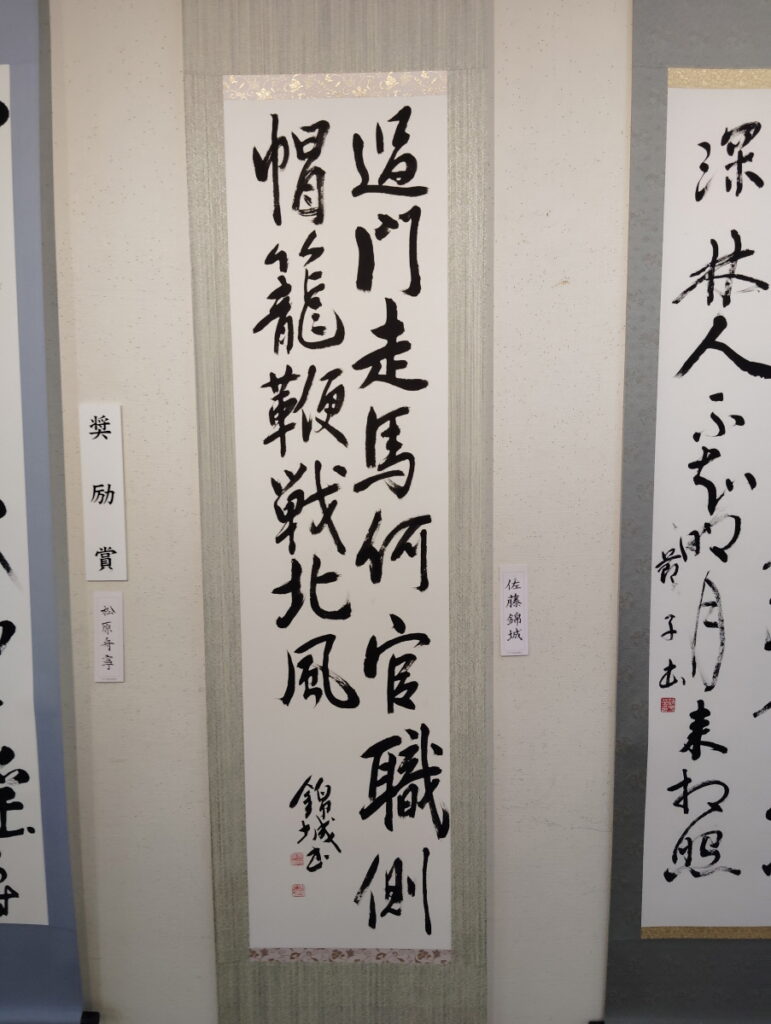 深林人不知明月来相照
子書
佐藤錦城
過門走馬何官職側
帽籠鞭戦北風
錦城書
奨励賞
松原